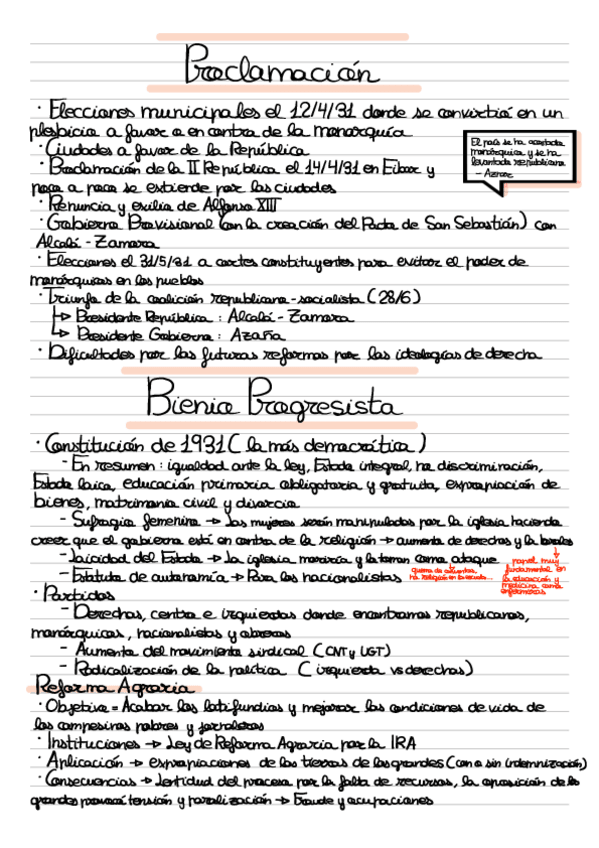 Proclamación
· Elecciones municipales el 12/4/31 donde se convirtió en un
plesbicio a favor o en contra de la monarquía
· Ciudades a favor de la República
· Proclamación de la II República el 14/4/31 en Eibar y
poco a poco se extiende por las ciudades
El país se ha acostado
monárquico y se ha
levantado republicano
- Aznar
· Renuncia y exilio de Alfonso XIII
· Gobierno Provisional (con la creación del Pacto de San Sebastián) con
Alcalá - Zamora
· Elecciones el 31/5/31 a cortes constituyentes para evitar el poder de
monárquicos en los pueblos
· Triunfo de la coalición republicano-socialista (28/6)
↳ Presidente República : Alcalá - Zamora
↳ Presidente Gobierno : Azaña
· Dificultades por las futuras reformas por las ideologías de derecha
Bienio Progresista
· Constitución de 1931 ( la más democrática )
- En resumen : igualdad ante la ley, Estado integral, no discriminación,
Estado laico, educación primaria obligatoria y gratuita, expropiación de
bienes, matrimonio civil y divorcio
- Sufragio femenino → Las mujeres serán manipuladas por la iglesia haciendo
creer que el gobierno está en contra de la religión → aumento de derechos y la
- Laicidad del Estado → La iglesia moriría y lo toman como ataque
quema de conventos,
no religión en la escuela...
papel muy
fundamental en
la educación y
medicina como
enfermeras
- Estatuto de autonomía → Para los nacionalistas
· Partidos
- Derechas, centro e izquierdas donde encontramos republicanos,
monárquicos, nacionalistas y obreros
- Aumento del movimiento sindical (CNT y UGT)
- Radicalización de la política ( izquierda vs derechas)
Reforma Agraria
· Objetivo = Acabar los latifundios y mejorar las condiciones de vida de
los campesinos pobres y jornaleros
· Instituciones → Ley de Reforma Agraria por la IRA
· Aplicación → expropiaciones de las tierras de los grandes (con o sin indemnización)
· Consecuencias → Lentitud del proceso por la falta de recursos, la oposición de los
grandes provocó tensión y paralización → fraude y ocupaciones